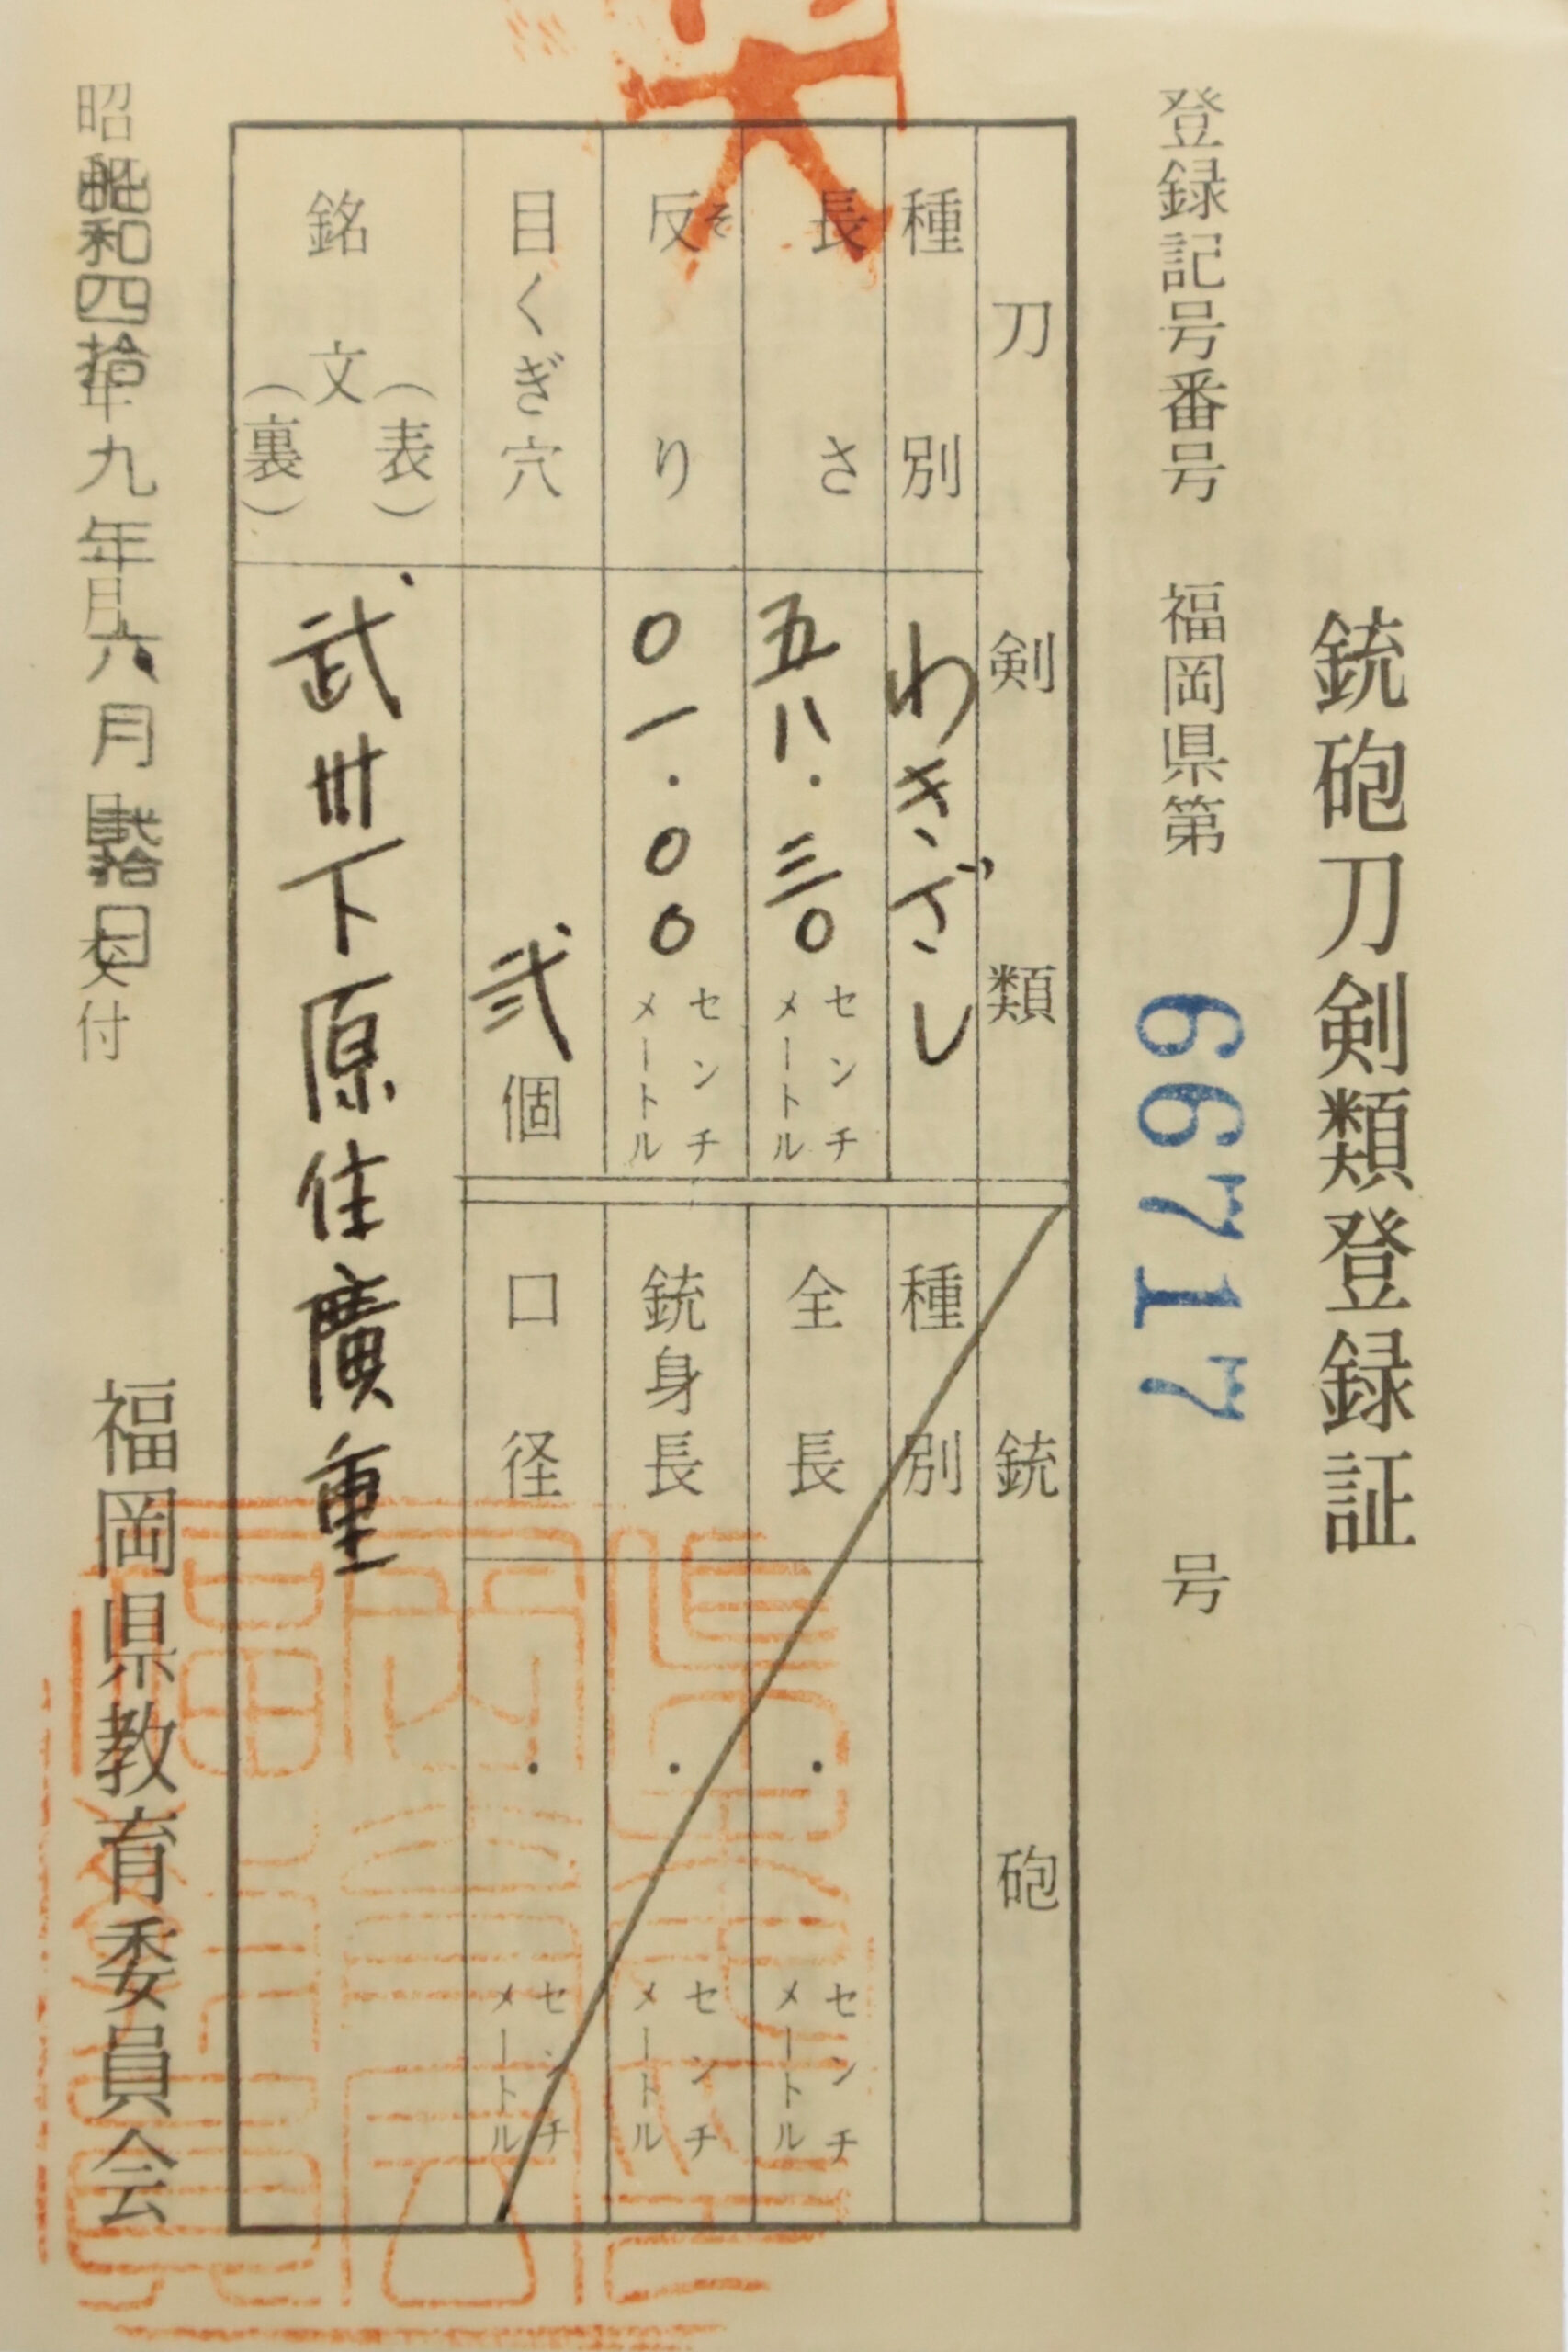 銃砲刀剣類登録証
登録記号番号 福岡県第 66717 号
刀剣類
種別 わきざし
長さ 五八.三〇 センチメートル
反り 〇一.〇〇 センチメートル
目くぎ穴 弐個
銘文 (表) (裏) 武卅下原住廣重
銃砲
種別
全長 . センチメートル
銃身長 . センチメートル
口径 . センチメートル
昭和四拾九年六月弐拾日交付
福岡県教育委員会